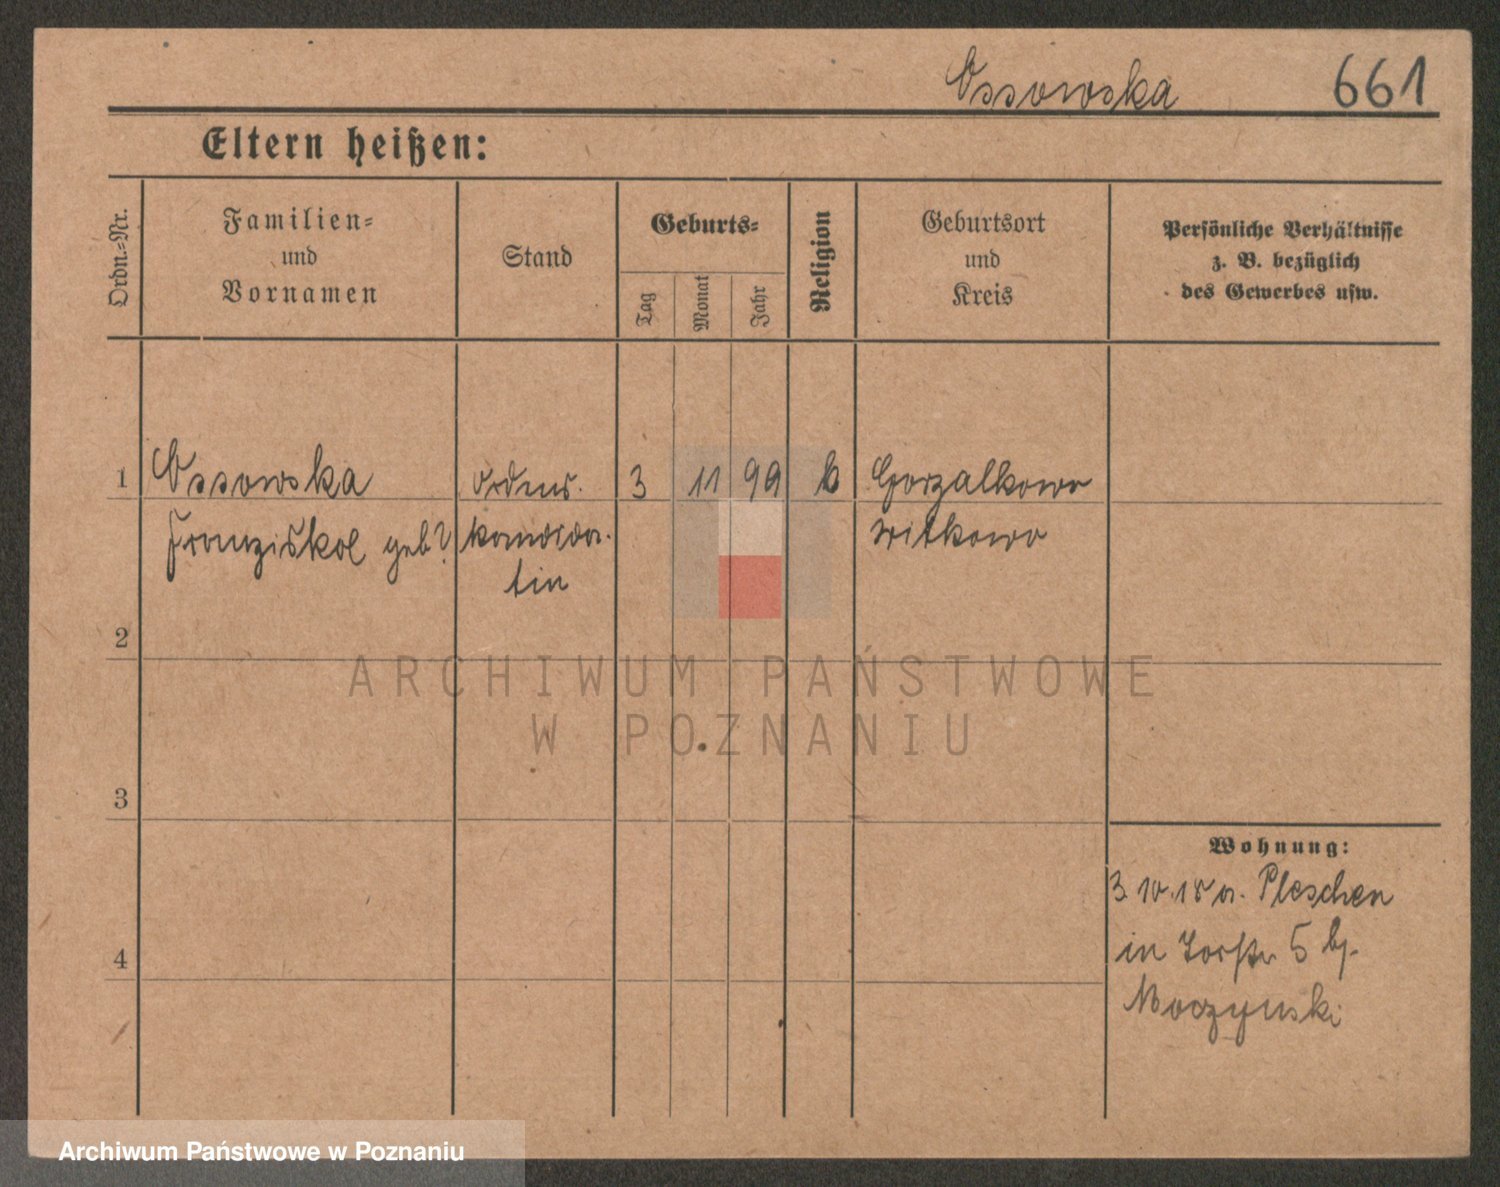 Ossowska 661
Eltern heißen:
Ordn.=Nr.
Familien=
und
Vornamen
Stand
Geburts=
Tag
Monat
Jahr
Religion
Geburtsort
und
Kreis
Persönliche Verhältnisse
z. B. bezüglich
des Gewerbes usw.
1 Ossowska Ordens. 3 11 99 k Gorzalkowo
Franziska geb? kandida-
tin
Witkowo
2
3
4
Wohnung:
3.10.18 a. Pleschen
in Torstr 5 bj.
Moczynski
ARCHIWUM PAŃSTWOWE
W POZNANIU
Archiwum Państwowe w Poznaniu